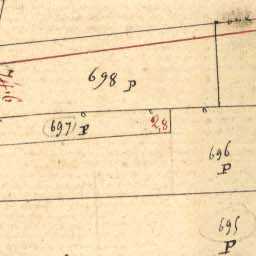 698 p
697 P
2,8
696
P
695
P